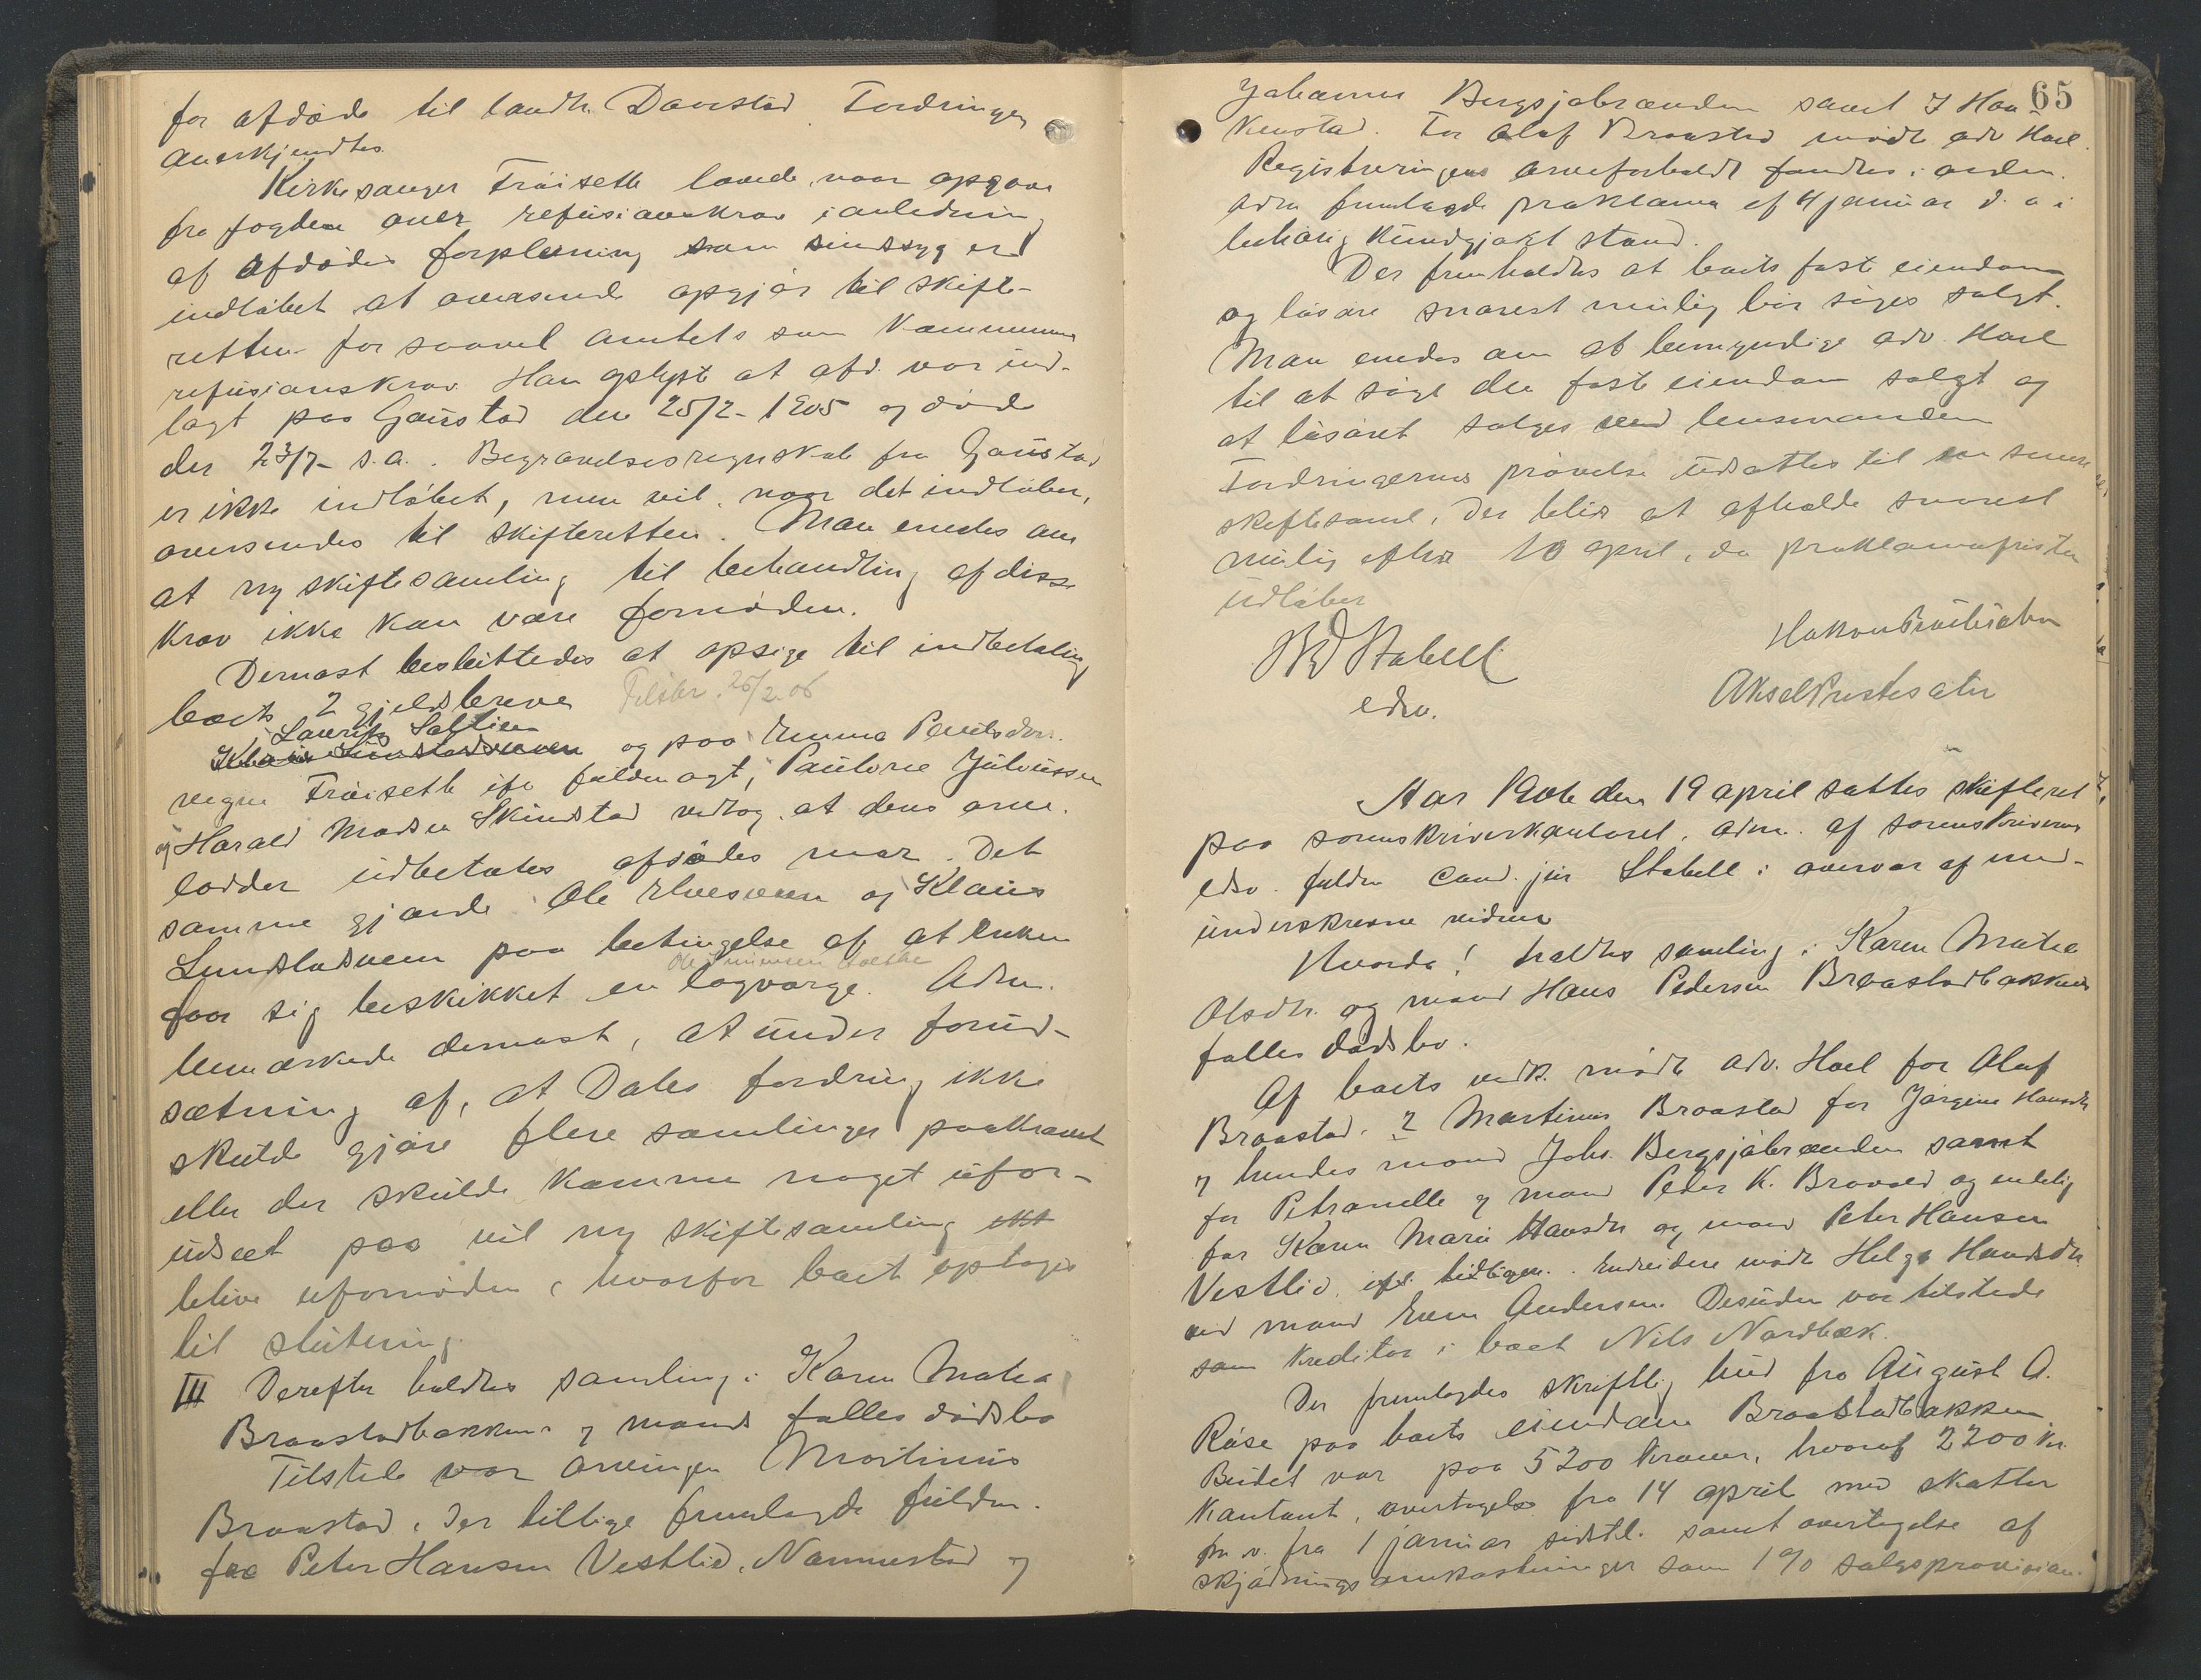 for afdøde til landh. Davestad. Fordringen
anerkjendtes.
Kirkesanger Frøisette lovede, naar opgave
fra fogden over refusionskrav i anledning
af afdødes forpleining som sindssyg er
indløbet at oversende opgjør til skifte-
retten for saavel amtets som kommunens
refusionskrav. Han oplyste at afd. var ind-
lagt paa Gaustad den 25/2- 1905 og døde
der 23/7- s.a. Begravelsesregnskab fra Gaustad
er ikke indløbet, men vil, naar det indløber,
oversendes til skifteretten. Man enedes om
at ny skiftesamling til behandling af disse
krav ikke kan være fornøden.
Dernæst besluttedes at opsige til indbetaling
boets 2 gjeldsbreve Tilskr. 26/2.06
Lauritz Saftien
og paa Emma Paulsdrs.
vegne Frøisette ifø fuldmagt, Pauline Juliussen
og Harald Madsen Skindstad vedtog, at dens arve-
lodder udbetales afdødes mor. Det
samme gjorde Ole Elvesveen og Klaus
Lundstadsveen paa betingelse af at enken
faar sig beskikket en lagverge. Adm.
bemærkede dernæst, at under forud-
sætning af, at Dales fordring ikke
skulde gjøre flere samlinger paakrævet
eller der skulde komme noget ufor-
udseet paa vil ny skiftesamling ikke
blive ufornøden, hvorfor boet optages
til slutning.
III Derefter holdtes samling i Karen Mathea
Braastadbakkens og mands fælles dødsbo
Tilstede var arvingen Martinus
Braastad, der tillige fremlagde fuldm.
fra Peter Hansen Vestlid, Nannestad og
65
Johannes Bergsjøbrænden samt I Han
Kenstad. For Olaf Braastad mødte adv. Hoel.
Registreringens arveforhold fandtes i orden.
Adm. fremlagde proklama af 4 januar d. a. i
behørig kundgjort stand.
Der fremholdtes at boets faste eiendom
og løsøre snarest mulig bør søges solgt.
Man enedes om at bemyndige adv. Hoel
til at søge den faste eiendom solgt og
at løsøret sælges ved lensmanden
Fordringernes prøvelse udsattes til en senere
skiftesaml., der blir at afholde snarest
mulig efter 10 april, da proklamafristen
udløber
Stabell
edsv.
Aksel Prestesæter
Aar 1906 den 19 april sattes skifteret
paa sorenskriverkontoret, adm. af sorenskriverens
edsv. fuldm. cand. jur Stabell i overvær af med-
underskrevne vidner
Hvorda! holdtes samling i Karen Mathea
Olsdtr. og mand Hans Pedersen Braastadbakkens
fælles dødsbo.
Af boets vedk. mødte adv. Hoel for Olaf
Braastad, 2 Martinus Braastad for Jørgine Hansdtr
og hendes mand Johs. Bergsjøbrænden samt
for Petronelle og mand Peder K. Bravold og endelig
for Karen Marie Hansdtr og mand Peter Hansen
Vestlid, ifl. tidligere. Endvidere mødte Helga Hansdtr
ved mand Even Andersen. Desuden var tilstede
som kreditor i boet Nils Nordbæk.
Der fremlagdes skriftlig bud fra August A.
Røise paa boets eiendom Braastadbakken
Budet var paa 5200 kroner, hvoraf 2200 kr.
kontant, overtagelse fra 14 april med skatter
m. v. fra 1 januar sidstl. samt overtagelse af
skjødningsomkostninger som 1% salgsprovision.